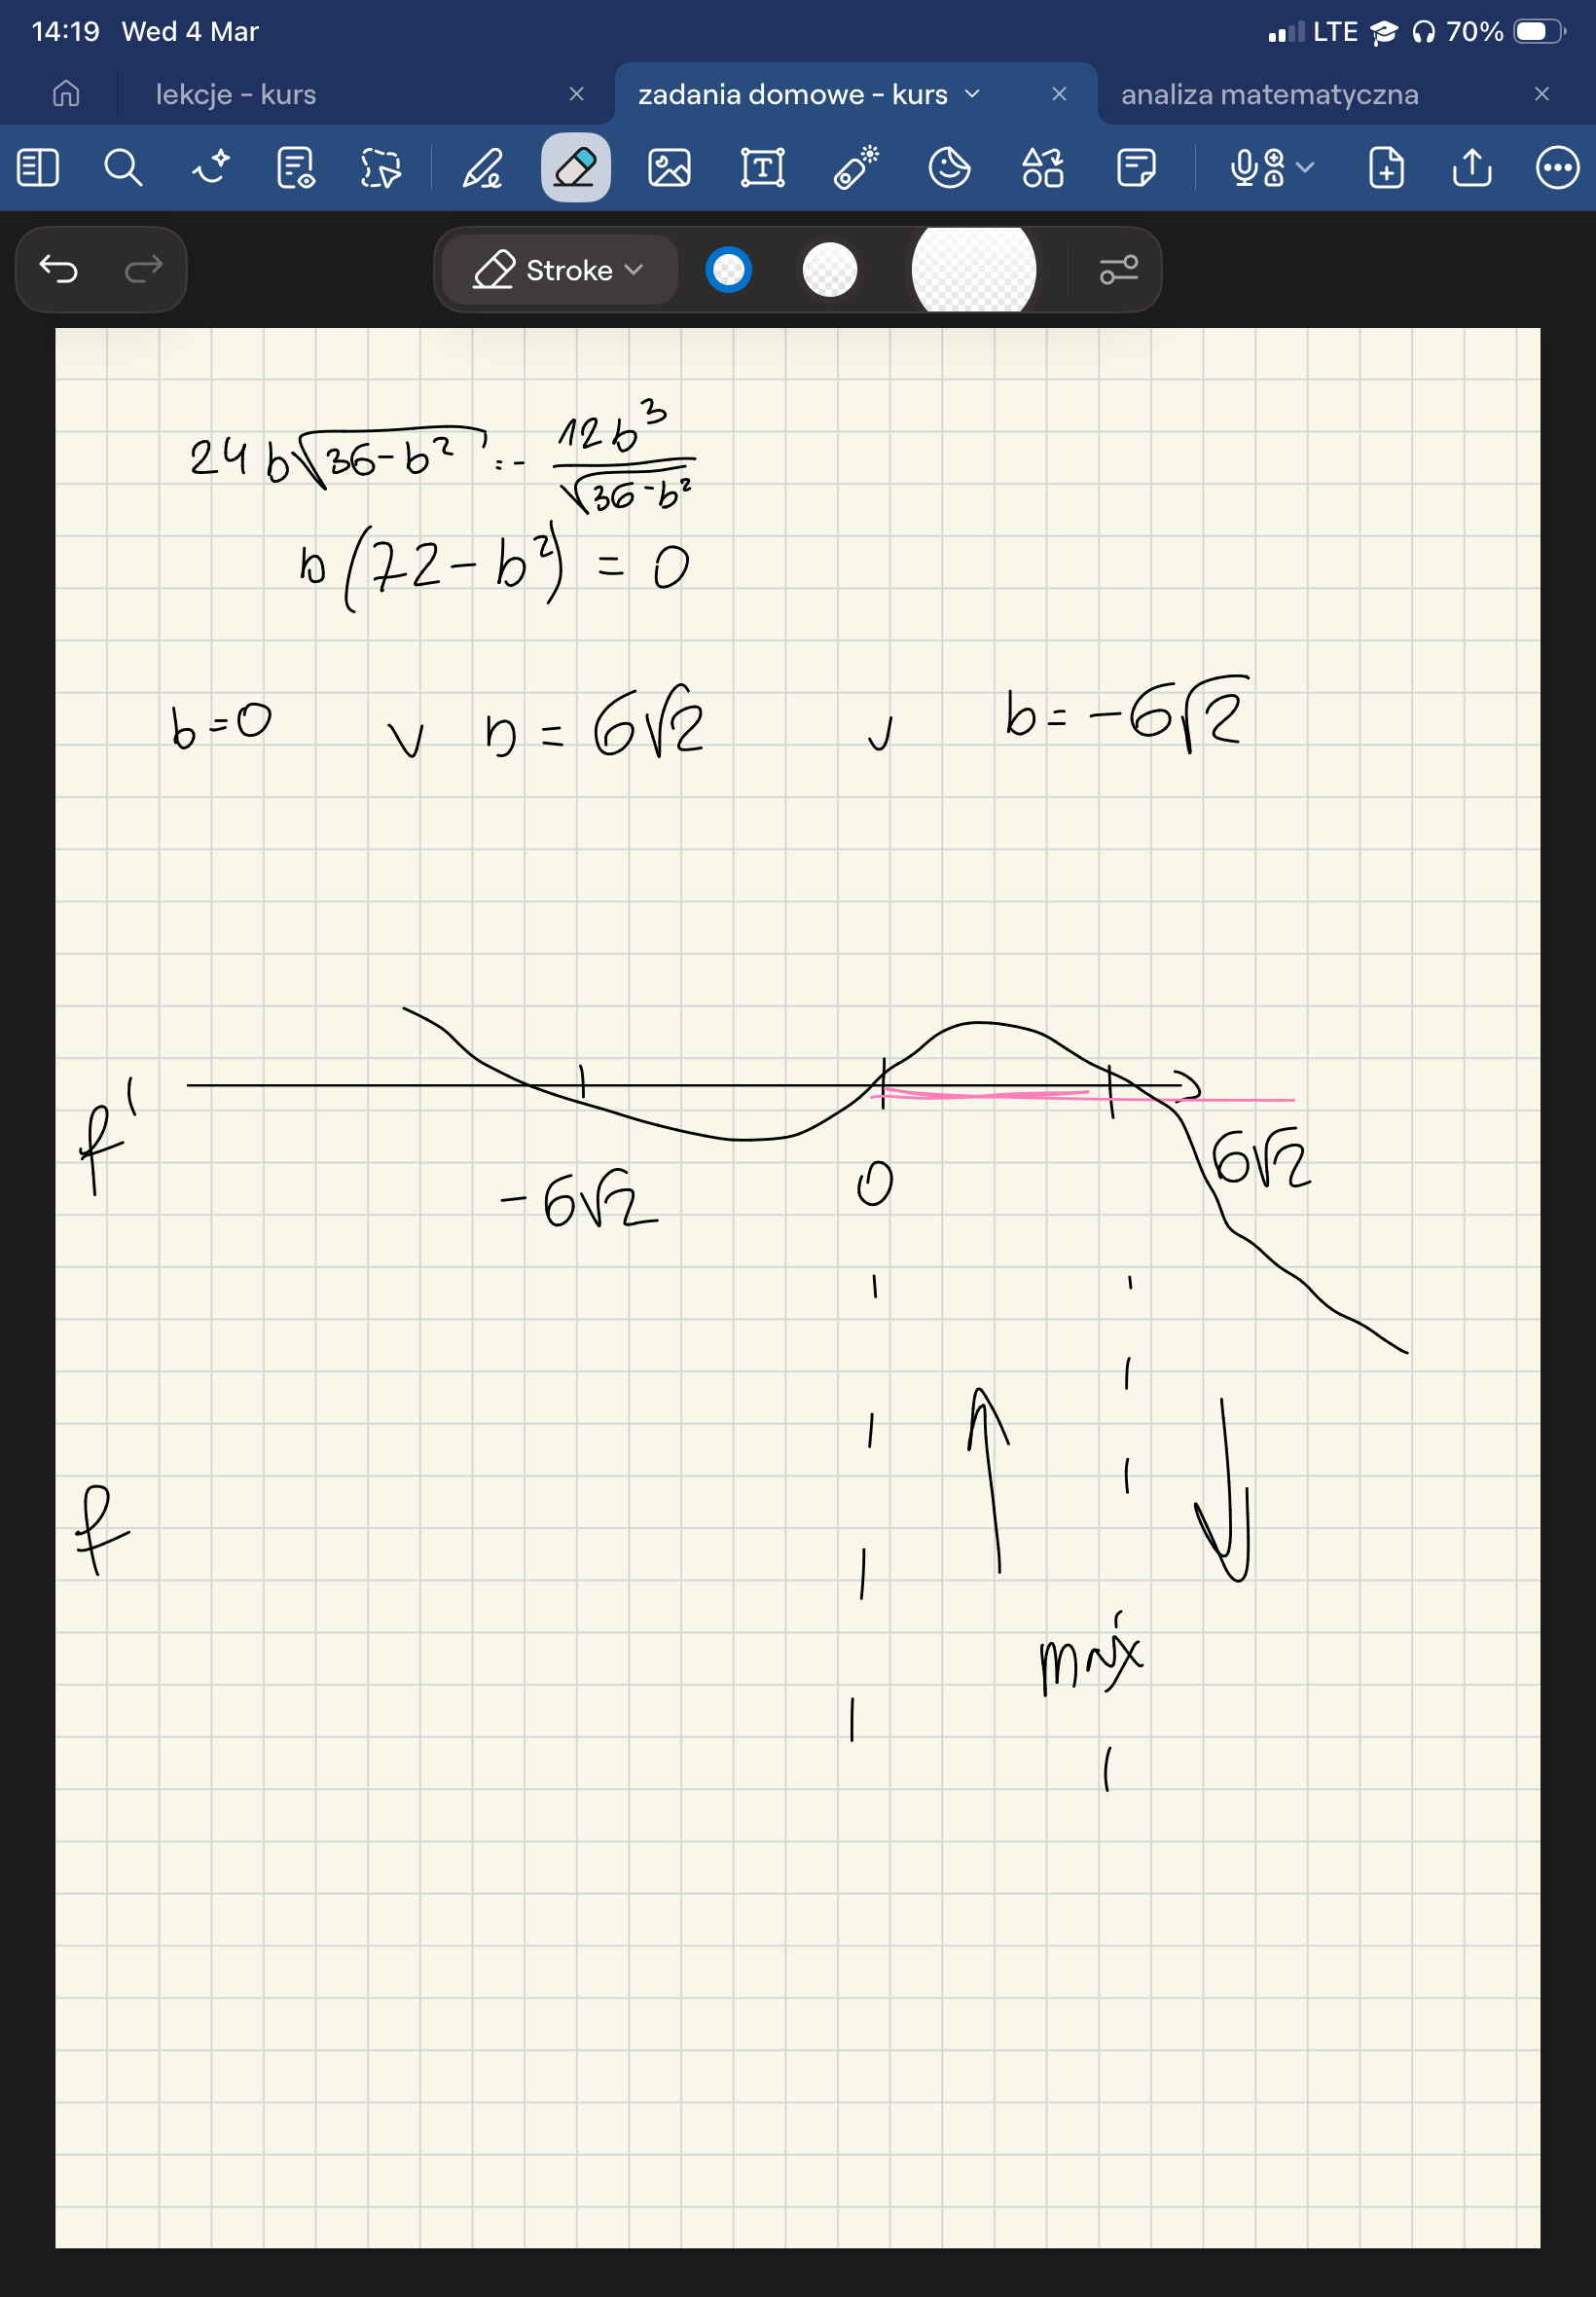 14:19 Wed 4 Mar LTE 70%
lekcje - kurs zadania domowe - kurs analiza matematyczna
T
Stroke
24b√(36-b²) = - 12b³/√(36-b²)
b(72-b²) = 0
b=0 v b = 6√2 v b = -6√2
f'
-6√2 0 6√2
f
max